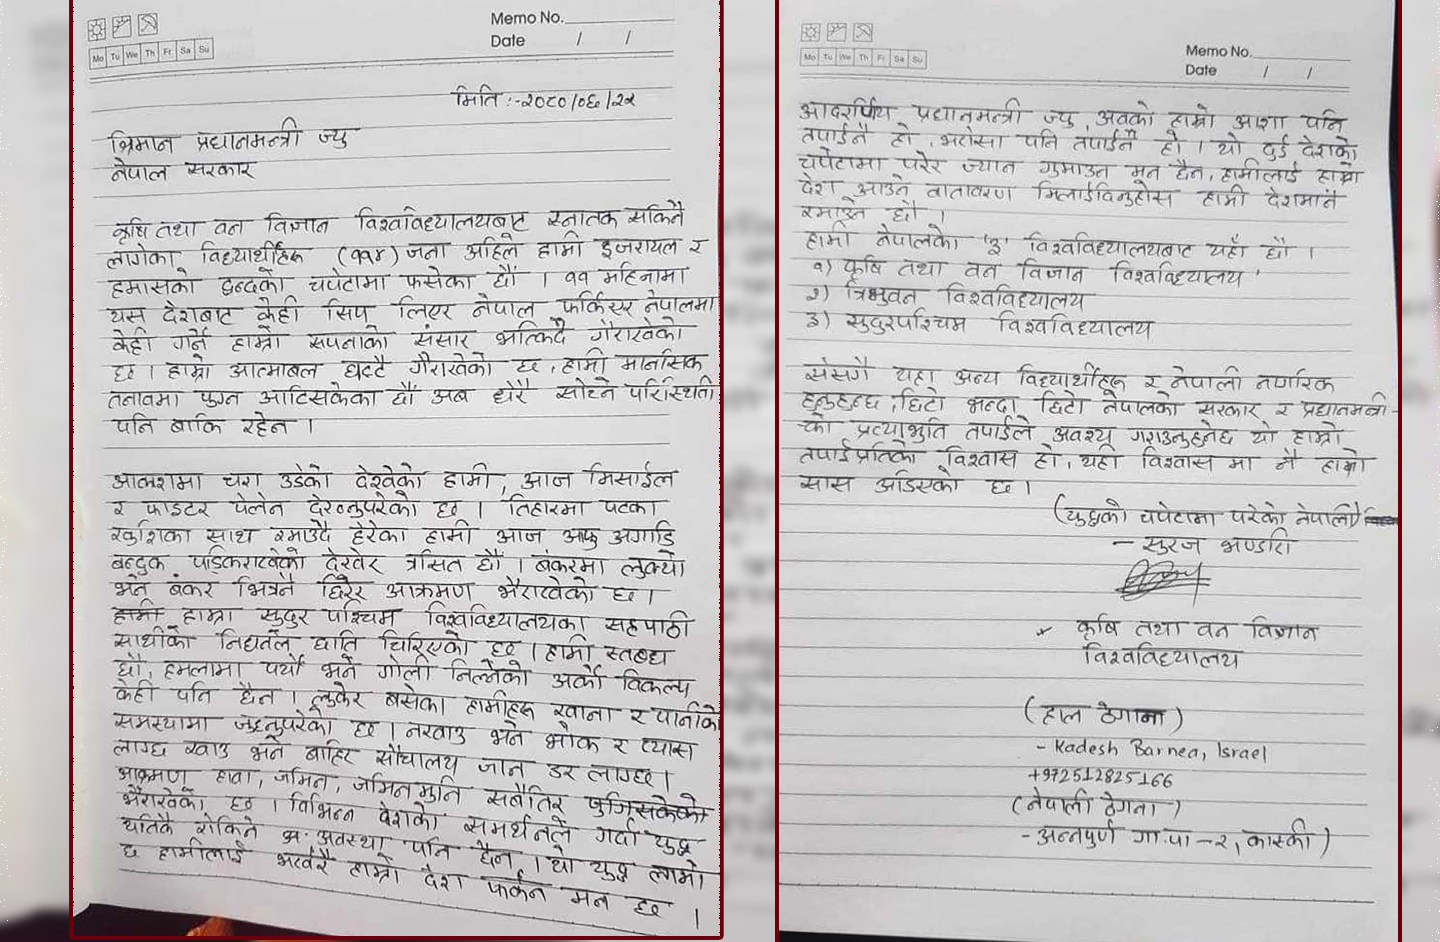 Memo No.
Date / /
Mo Tu We Th Fr Sa Su
मिति :-२०८०/०६/२२
श्रिमान प्रधानमन्त्री ज्यु
नेपाल सरकार
कृषि तथा वन विज्ञान विश्वविद्यालयबाट स्नातक सकिनै
लागेका विद्यार्थीहरू (११४) जना अहिले हामी इजरायल र
हमासको द्वन्दको चपेटामा फसेका छौं । ११ महिनामा
यस देशबाट केही सिप लिएर नेपाल फर्किएर नेपालमा
केही गर्ने हाम्रो सपनाको संसार भत्किदै गैराखेको
छ । हाम्रो आत्मबल घट्दै गैराखेको छ, हामी मानसिक
तनावमा पुग्न आटिसकेका छौं अब धेरै सोच्ने परिस्थिती
पनि बाकि रहेन ।
आकाशमा चरा उडेको देखेको हामी, आज मिसाईल
र फाइटर प्लेन देख्नुपरेको छ । तिहारमा पटका
खुशिका साथ रमाउदै हेरेका हामी आज आफु अगाडि
बन्दुक पड्किराखेको देखेर त्रसित छौं । बंकरमा लुक्यो
भने बंकर भित्रनै छिरेर आक्रमण भैराखेको छ ।
हामी हाम्रा सुदुर पश्चिम विश्वविद्यालयका सहपाठी
साथीको निधनले छाति चिरिएको छ । हामी स्तब्ध
छौं, हमलामा पर्यो भने गोली निल्नेको अर्को विकल्प
केही पनि छैन । लुकेर बसेका हामीहरू खाना र पानीको
समस्यामा जुझ्नुपरेको छ । नखाउ भने भोक र प्यास
लाग्छ खाउ भने बाहिर सौचालय जान डर लाग्छ ।
आक्रमण हावा, जमिन, जमिनमुनि सबैतिर पुगिसकेको
भैराखेको छ । विभिन्न देशको समर्थनले गर्दा युद्ध
यतिकै रोकिने अवस्था पनि छैन । यो युद्ध लामो
छ हामीलाई भरखरै हाम्रो देश फर्कन मन छ ।
Memo No.
Date / /
Mo Tu We Th Fr Sa Su
आदरर्णिय प्रधानमन्त्री ज्यु, अबको हाम्रो आशा पनि
तपाईनै हो, भरोसा पनि तपाईनै हो । यो दुई देशको
चपेटामा परेर ज्यान गुमाउन मन छैन, हामीलाई हाम्रो
देश आउने वातावरण मिलाईदिनुहोस हामी देशमानै
रमाउने छौं ।
हामी नेपालको '३' विश्वविद्यालयबाट यहाँ छौं ।
१) कृषि तथा वन विज्ञान विश्वविद्यालय '
२) त्रिभुवन विश्वविद्यालय
३) सुदुरपश्चिम विश्वविद्यालय
सँसगै यहा अन्य विद्यार्थीहरू र नेपाली नागरिक
हुनुहुन्छ, छिटो भन्दा छिटो नेपालको सरकार र प्रधानमन्त्री-
को प्रत्याभुति तपाईले अवश्य गराउनुहुनेछ यो हाम्रो
तपाईप्रतिको विश्वास हो, यही विश्वास मा नै हाम्रो
सास अडिएको छ ।
(युद्धको चपेटामा परेको नेपाली)
- सुरज भण्डारी
कृषि तथा वन विज्ञान
विश्वविद्यालय
(हाल ठेगाना)
- Kadesh Barnea, Israel
+972512825166
(नेपाली ठेगना)
- अन्नपुर्ण गा.पा - २, कास्की)